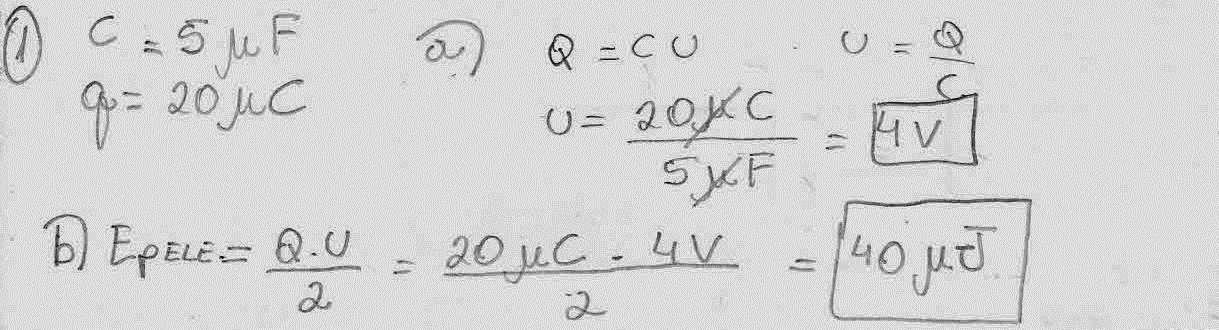 ① C = 5 μF
q = 20 μC
a) Q = C U U = Q/C
U = 20 μC / 5 μF = 4V
b) EPELE = Q.U / 2 = 20 μC . 4V / 2 = 40 μJ